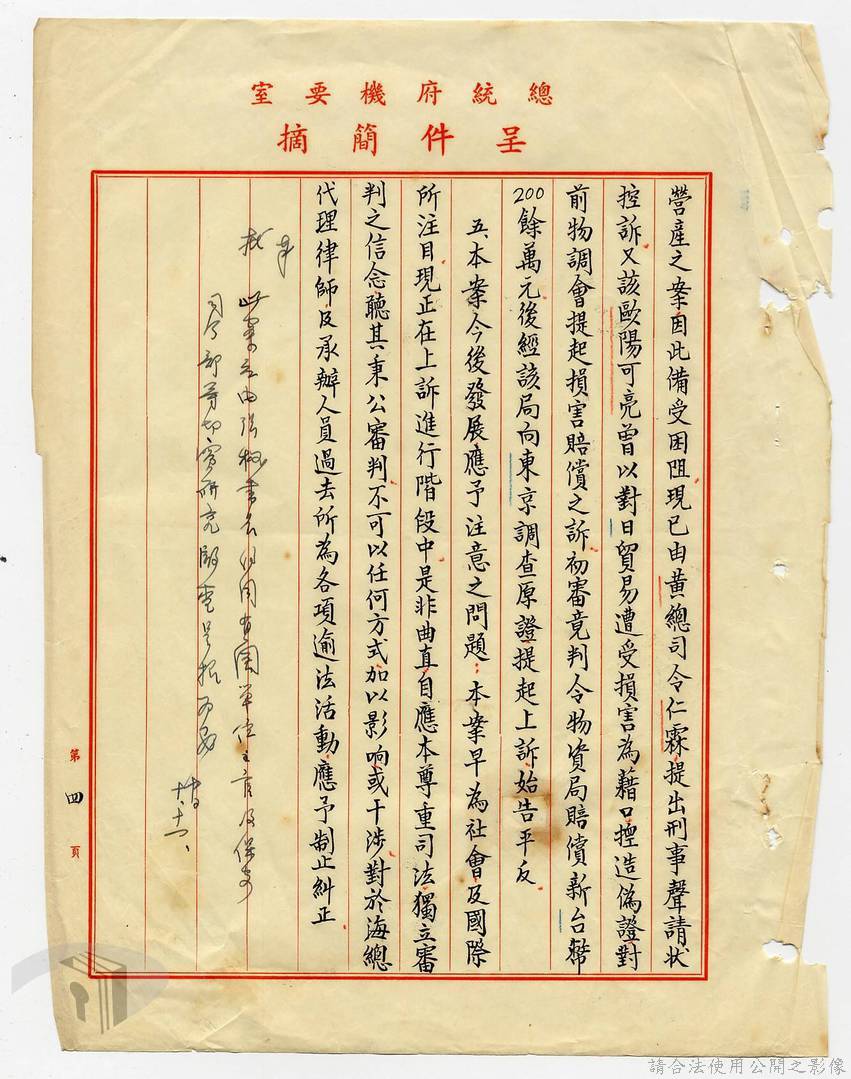 總統府機要室
呈件簡摘
營產之案因此備受困阻現已由黃總司令仁霖提出刑事聲請狀
控訴又該歐陽可亮曾以對日貿易遭受損害為藉口揑造偽證對
前物調會提起損害賠償之訴初審竟判令物資局賠償新台幣
200餘萬元後經該局向東京調查原證提起上訴始告平反
五、本案今後發展應予注意之問題：本案早為社會及國際
所注目現正在上訴進行階段中是非曲直自應本尊重司法獨立審
判之信念聽其秉公審判不可以任何方式加以影响或干涉對於海總
代理律師及承辦人員過去所為各項逾法活動應予制止糾正
奉
批
此案應由張秘書長約同有關單位主官及保安
司令部等切實研究辦理呈報可也
第四頁
請合法使用公開之影像